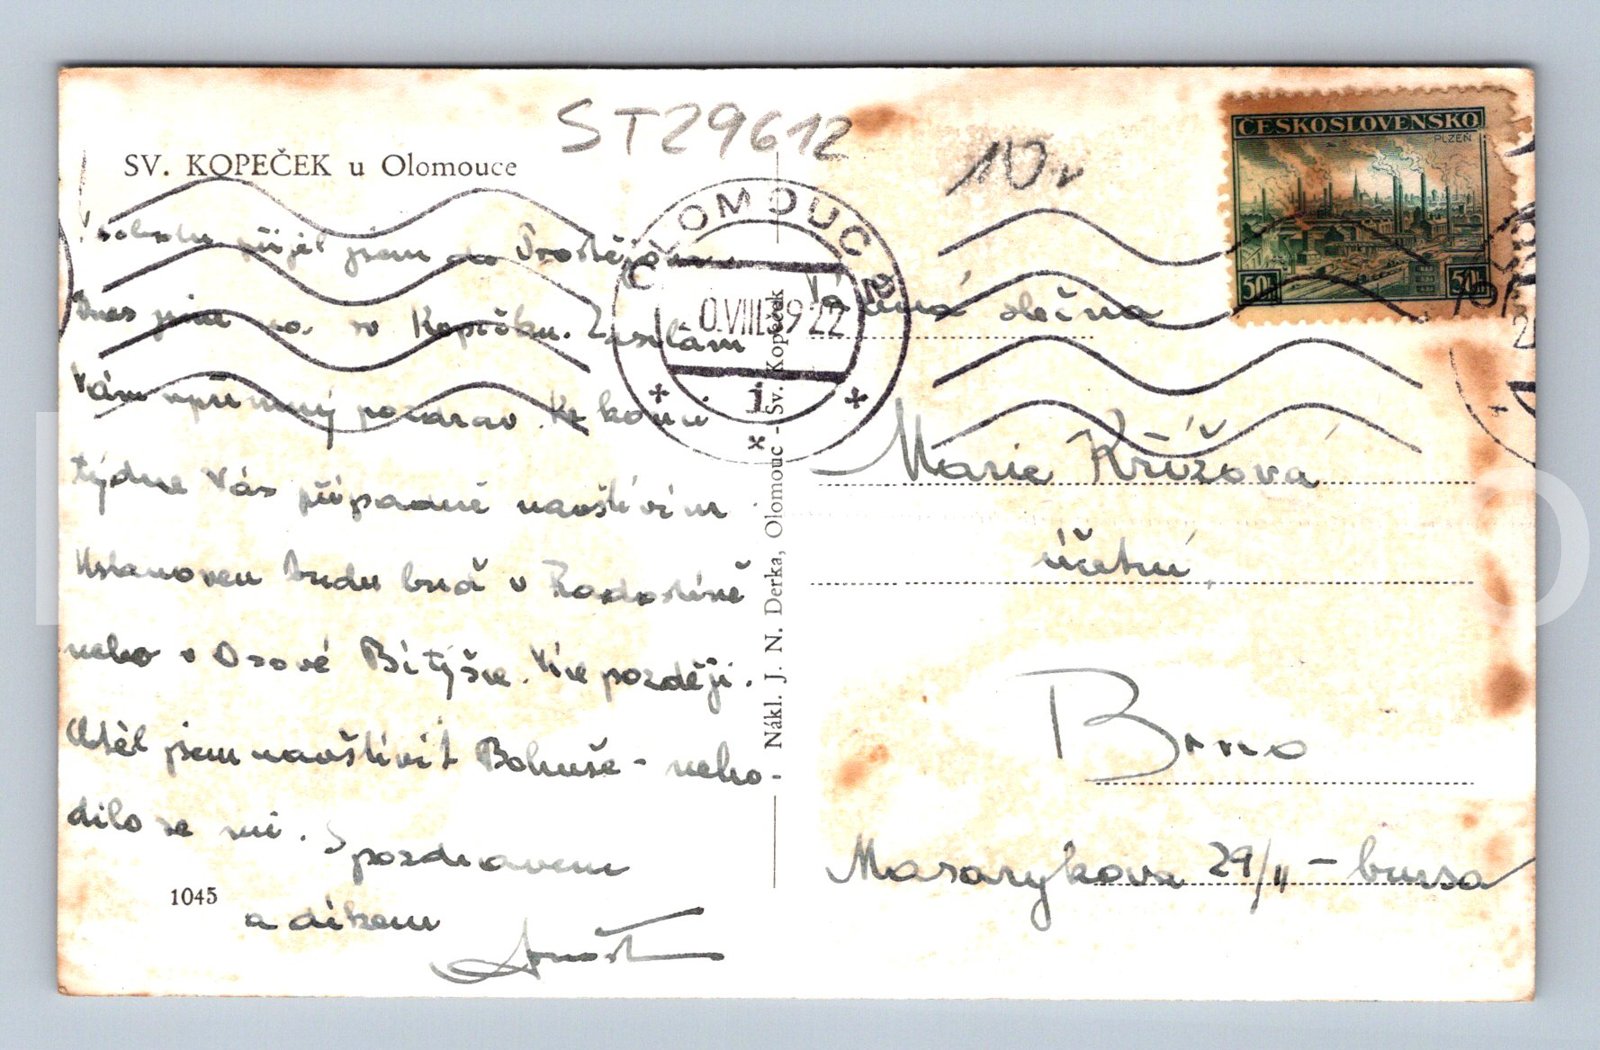 ST29612
SV. KOPEČEK u Olomouce
V sobotu přijel jsem do Prostějova.
Dnes jsem na sv Kopečku. Zasílám
Vám upřímný pozdrav. Ke konci
týdne Vás případně navštívím
Ustanoven budu buď v Radostíně
nebo v Osové Bitýšce. Více později.
Chtěl jsem navštívit Bohuše - neho-
dilo se mi. S pozdravem
a díkem
1045
Nákl. J. N. Derka, Olomouc - Sv. Kopeček
OLOMOUC 2
0.VIII.39 22
1
10
ČESKOSLOVENSKO
PLZEŇ
50h 50h
Vážená slečna
Marie Křížova
účetní
Brno
Masarykova 29/II - bursa